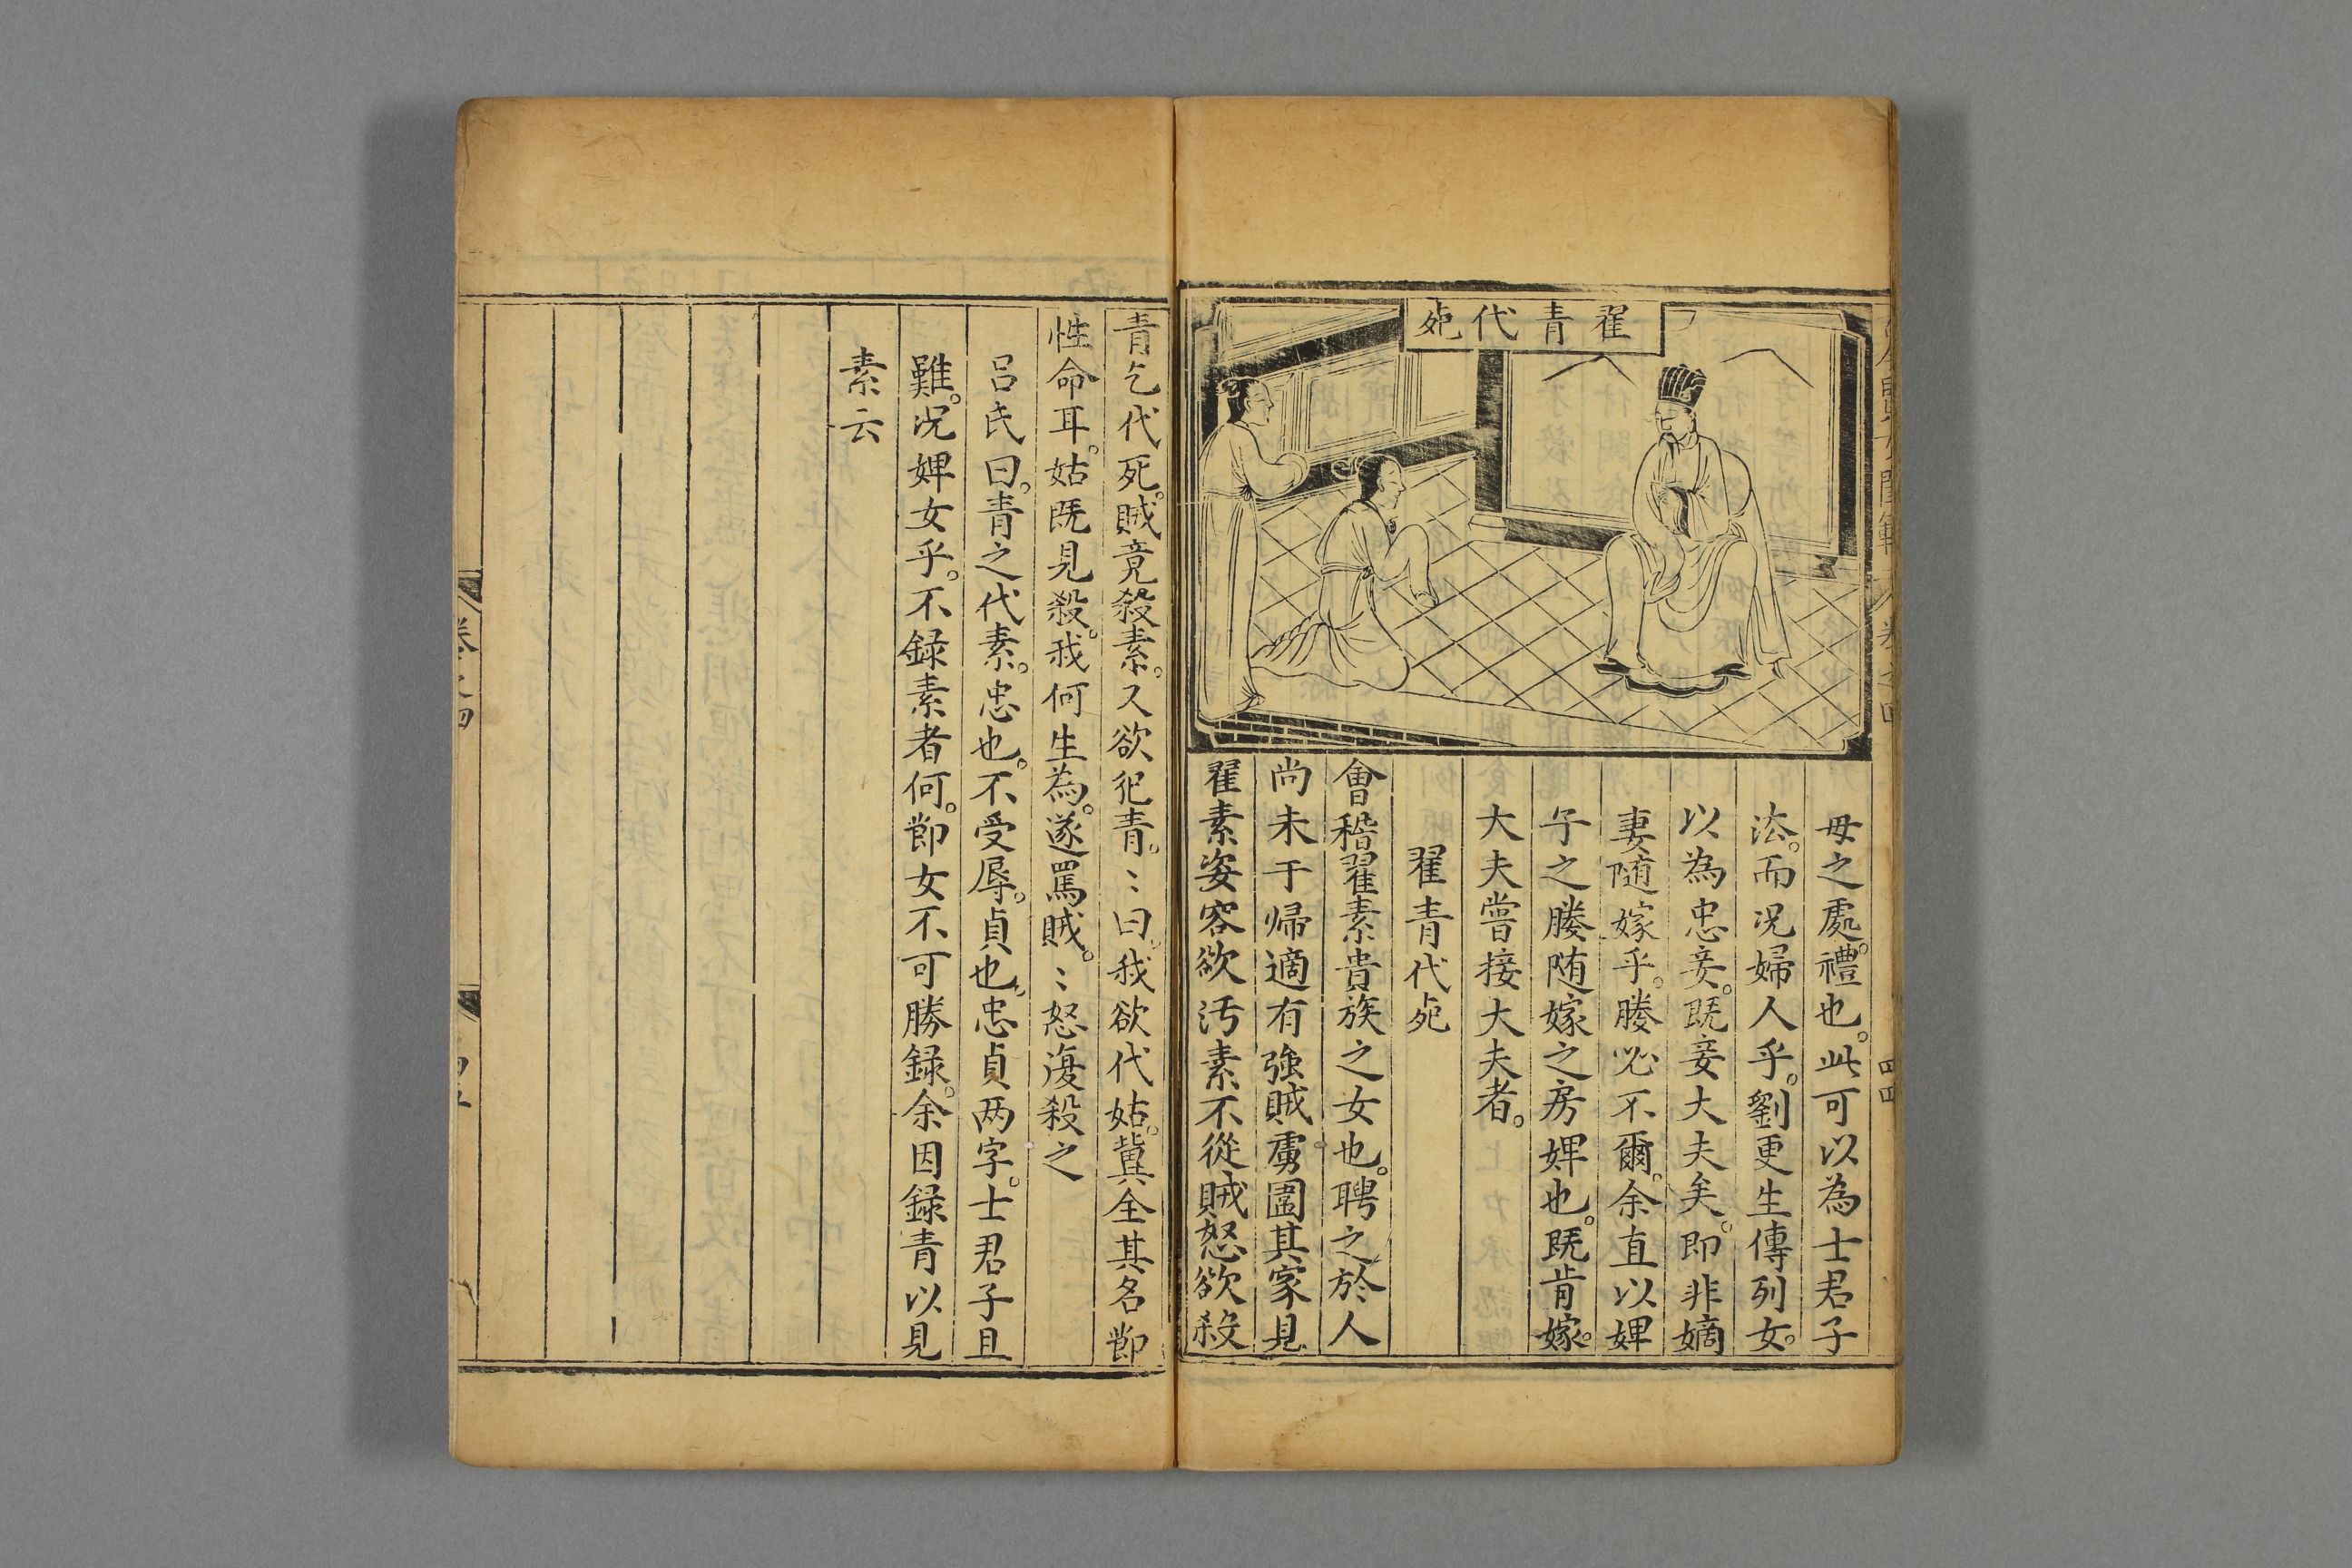 翟青代𣦸
母之處禮也。此可以為士君子
法。而况婦人乎。劉更生傳列女。
以為忠妾。既妾大夫矣。即非嫡
妻随嫁乎。媵必不爾。余直以婢
子之媵随嫁之房婢也。既肯嫁。
大夫嘗接大夫者。
翟青代𣦸
會稽翟素貴族之女也。聘之於人
尚未于帰適有強賊虜圖其家見
翟素姿容欲汚素不從賊怒欲殺
青乞代死。賊竟殺素。又欲犯青。〻曰我欲代姑。冀全其名節
性命耳。姑既見殺。我何生為。遂罵賊。〻怒復殺之
呂氏曰。青之代素。忠也。不受辱。貞也。忠貞两字。士君子且
難。况婢女乎。不録素者何。節女不可勝録。余因録青以見
素云
卷之四